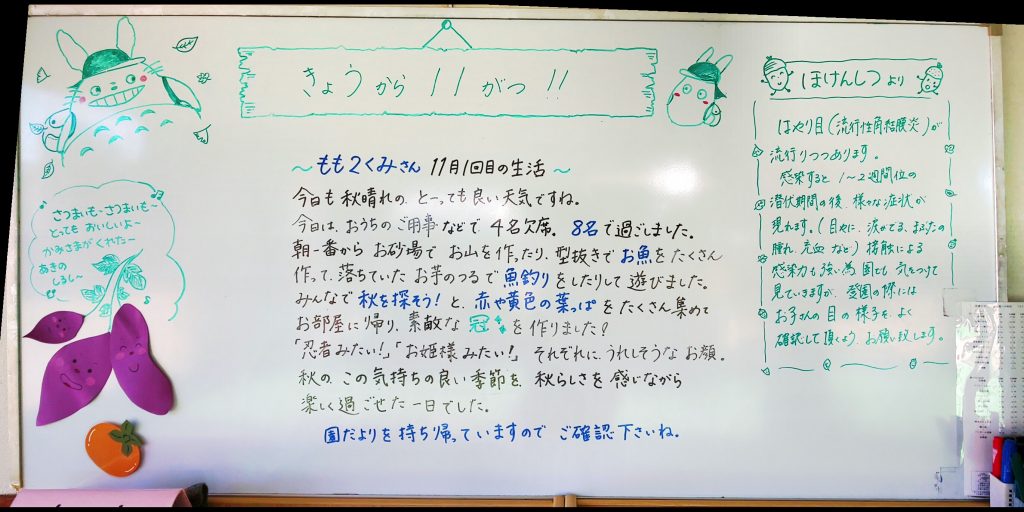 きょうから 11がつ!!
さつまいも〜さつまいも〜
とっても おいしいよ〜
かみさまが くれた〜
あきの
しるし〜
〜ももくみさん 11月1回目の生活〜
今日も 秋晴れの、とーっても良い天気ですね。
今日は、おうちのご用事などで 4名欠席、8名で過ごしました。
朝一番から お砂場で お山を作ったり、型抜きでお魚をたくさん
作って、落ちていた お芋のつるで 魚釣りをしたりして 遊びました。
みんなで 秋を探そう!と、赤や黄色の葉っぱを たくさん集めて
お部屋に帰り、素敵な 冠を作りました!
「忍者みたい!」「お姫様みたい!」 それぞれに、うれしそうな お顔。
秋の この気持ちの良い季節を、秋らしさを感じながら
楽しく過ごせた一日でした。
園だよりを持ち帰っていますので ご確認下さいね。
ほけんしつより
はやり目(流行性角結膜炎)が
流行りつつあります。
感染すると 1〜2週間位の
潜伏期間の後、様々な症状が
現れます。(目やに、涙がでる、まぶたの
腫れ、充血 など) 接触による
感染力も強い為 園でも 気をつけて
見ていきますが、登園の際には
お子さんの目の様子を、よく
確認して頂くよう、お願い致します。